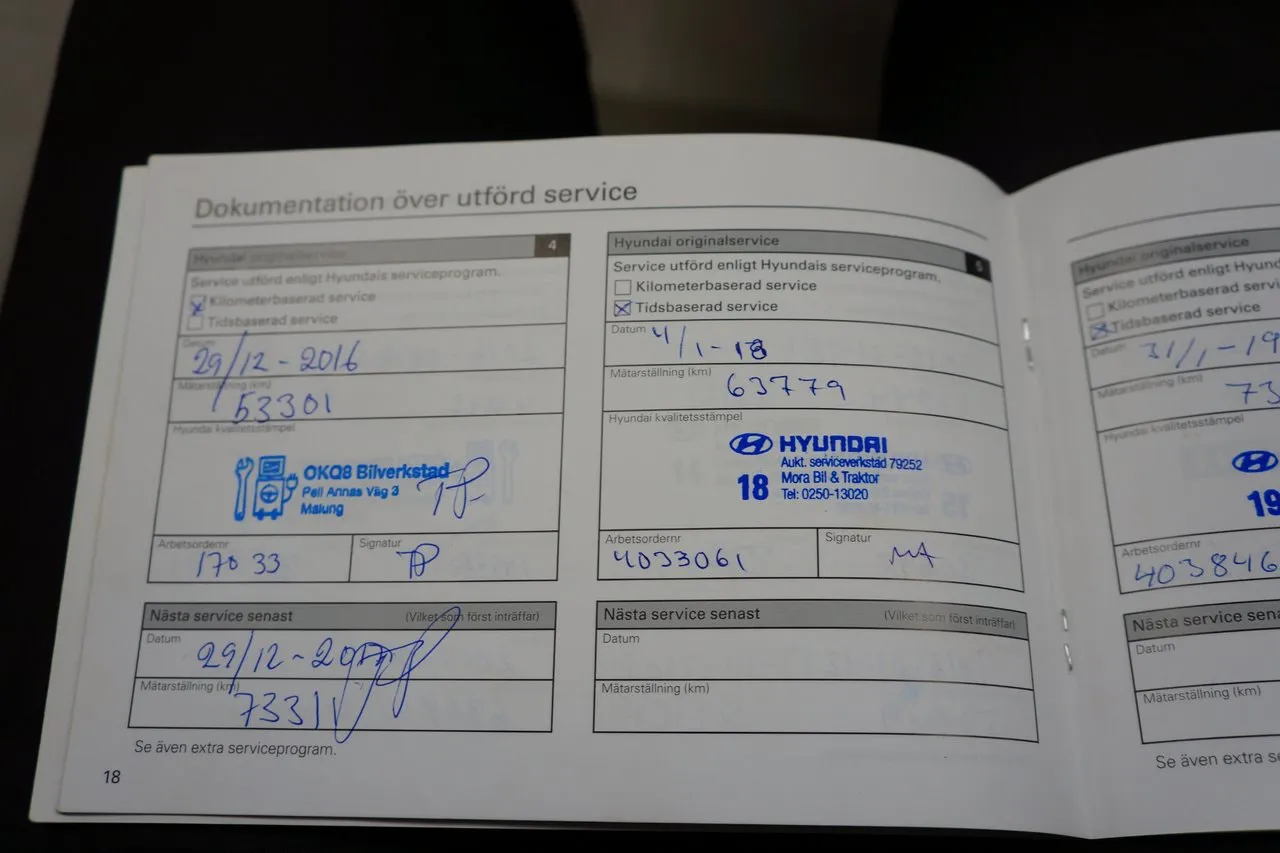 Dokumentation över utförd service
Hyundai originalservice
4
Service utförd enligt Hyundais serviceprogram.
Kilometerbaserad service
Tidsbaserad service
Datum
29/12 - 2016
Mätarställning (km)
53301
Hyundai kvalitetsstämpel
OKQ8 Bilverkstad
Pell Annas Väg 3
Malung
Arbetsordernr
17033
Signatur
Nästa service senast
(Vilket som först inträffar)
Datum
29/12 - 20
Mätarställning (km)
7331
Se även extra serviceprogram.
18
Hyundai originalservice
5
Service utförd enligt Hyundais serviceprogram.
Kilometerbaserad service
Tidsbaserad service
Datum
4/1 - 18
Mätarställning (km)
63779
Hyundai kvalitetsstämpel
HYUNDAI
Aukt. serviceverkstad 79252
18 Mora Bil & Traktor
Tel: 0250-13020
Arbetsordernr
4033061
Signatur
MA
Nästa service senast
(Vilket som först inträffar)
Datum
Mätarställning (km)
Hyundai originalservice
Service utförd enligt Hyund
Kilometerbaserad service
Tidsbaserad service
Datum
31/1 - 19
Mätarställning (km)
73
Hyundai kvalitetsstämpel
19
Arbetsordernr
403846
Nästa service sena
Datum
Mätarställning (km)
Se även extra s